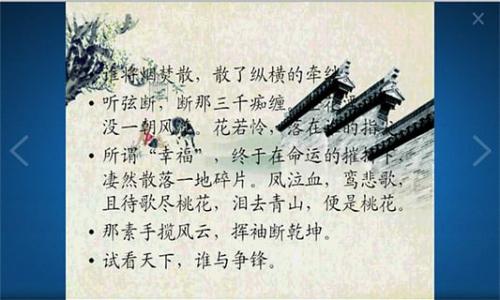 谁将烟焚散，散了纵横的牵绊
• 听弦断，断那三千痴缠。花
没一朝风。花若怜，落在的指
• 所谓“幸福”，终于在命运的摧下，
凄然散落一地碎片。凤泣血，鸾悲歌，
且待歌尽桃花，泪去青山，便是桃花。
• 那素手揽风云，挥袖断乾坤。
• 试看天下，谁与争锋。